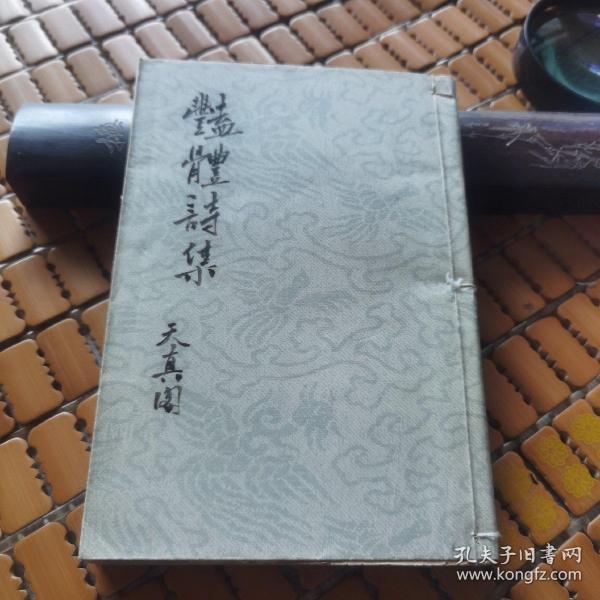 豔體詩集
天真閣
孔夫子旧書网
www.kongfz.com